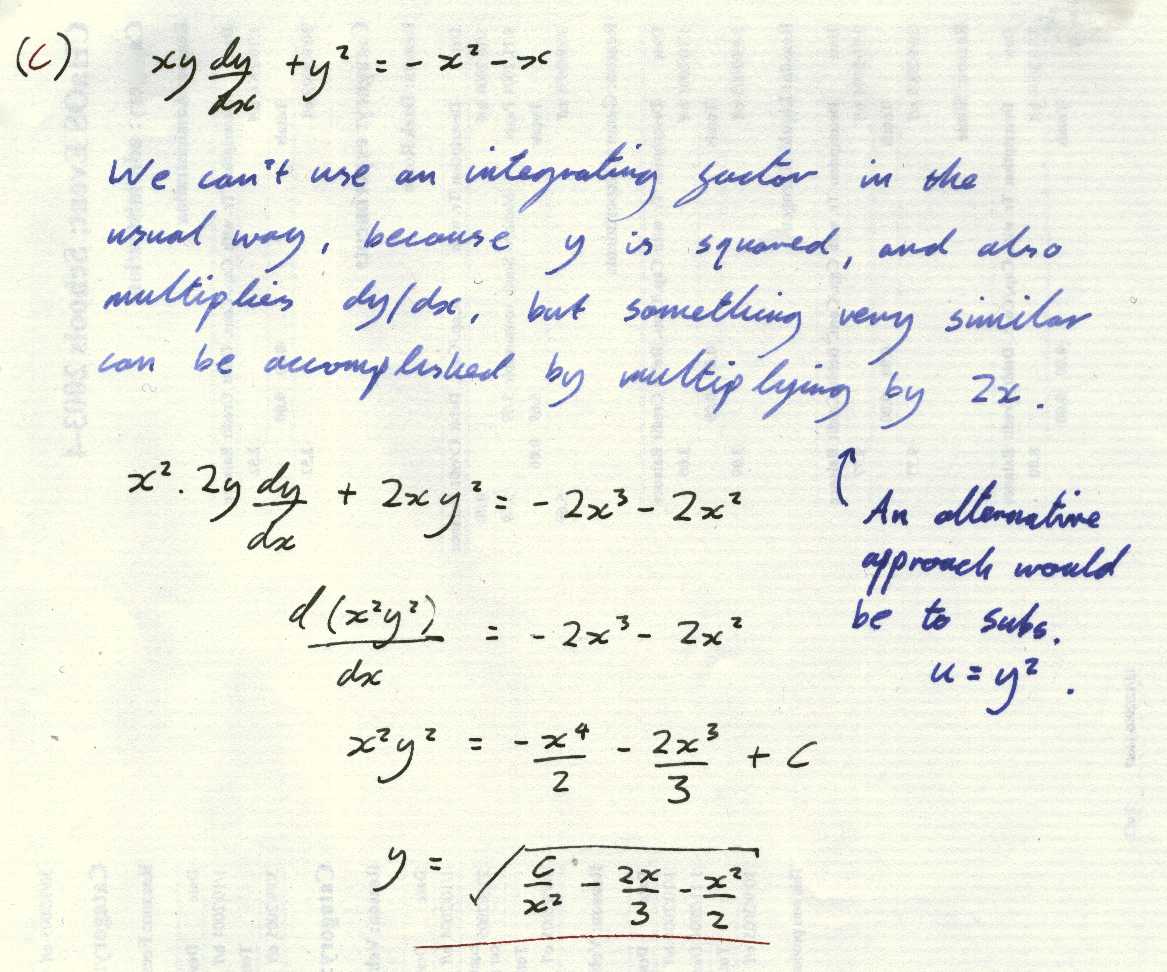 (c) xy dy/dx + y² = - x² - x
We can't use an integrating factor in the
usual way, because y is squared, and also
multiplies dy/dx, but something very similar
can be accomplished by multiplying by 2x.
x². 2y dy/dx + 2xy² = - 2x³ - 2x²
An alternative
approach would
be to subs.
u = y².
d(x²y²)/dx = - 2x³ - 2x²
x²y² = - x⁴/2 - 2x³/3 + C
y = √(C/x² - 2x/3 - x²/2)